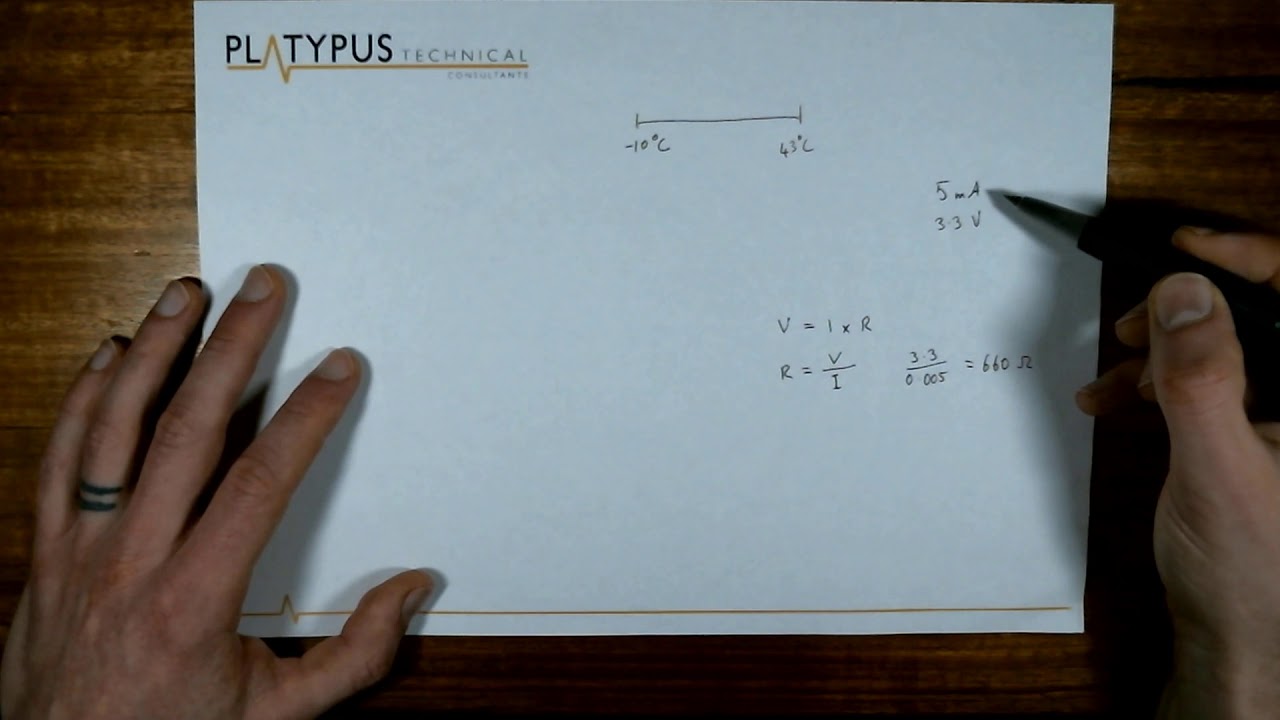 PLATYPUS TECHNICAL
CONSULTANTS
-10°C 43°C
5 mA
3.3 V
V = I x R
R = V/I 3.3/0.005 = 660 Ω